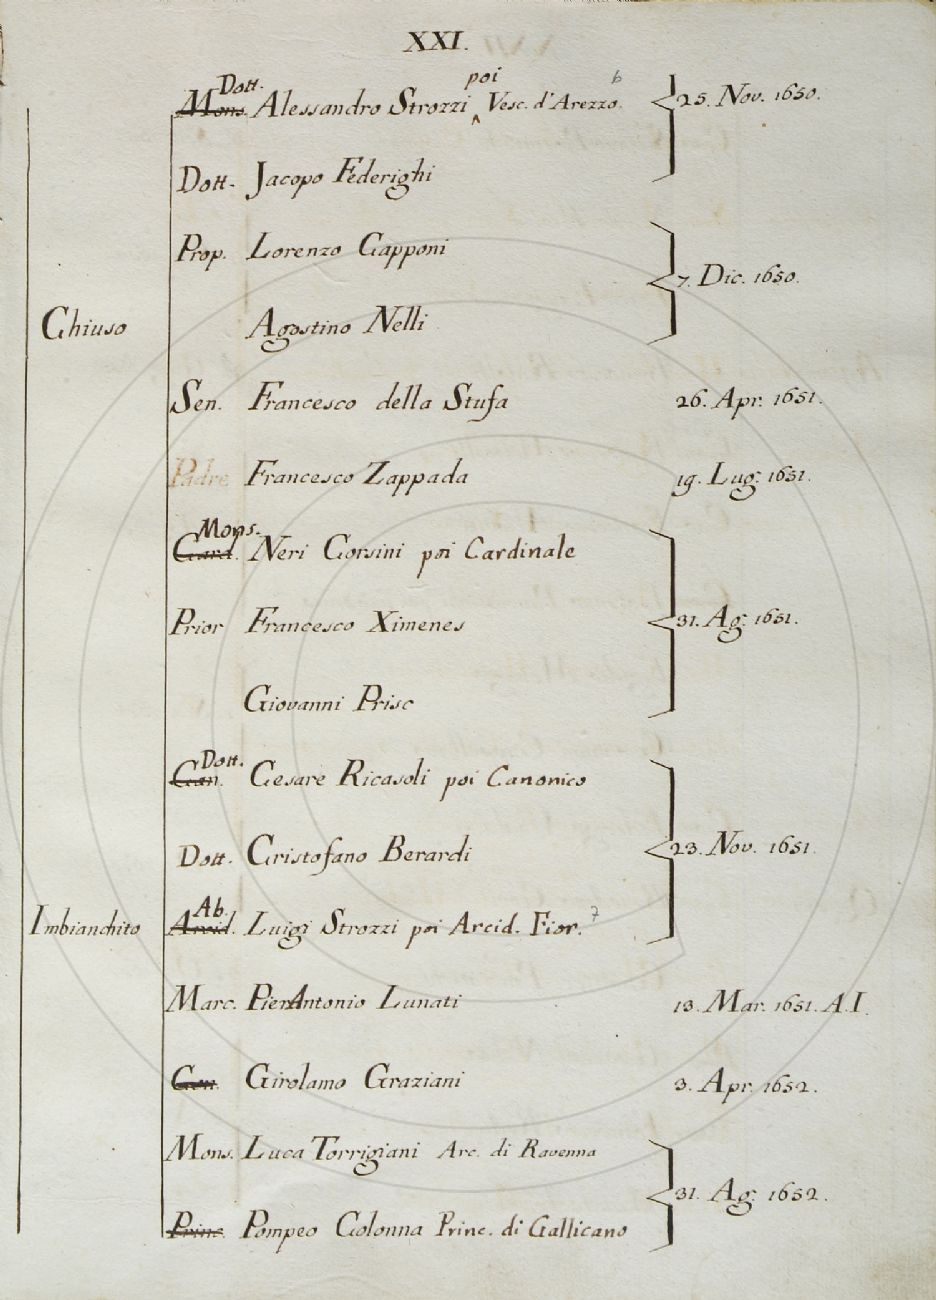 XXI.
Dott. poi b
Mons. Alessandro Strozzi ‸ Vesc. d'Arezzo. 25. Nov. 1650.
Dott. Jacopo Federighi
Prop. Lorenzo Capponi
7. Dic. 1650.
Chiuso Agostino Nelli
Sen. Francesco della Stufa 26. Apr. 1651.
Padre Francesco Zappada 19. Lug. 1651.
Mons.
Card. Neri Corsini poi Cardinale
Prior Francesco Ximenes 31. Ag. 1651.
Giovanni Prisc
Dott.
Can. Cesare Ricasoli poi Canonico
Dott. Cristofano Berardi 23. Nov. 1651.
Ab. 7
Imbianchito Arcid. Luigi Strozzi poi Arcid. Fior.
Marc. PierAntonio Lunati 13. Mar. 1651. A.I.
Girolamo Graziani 3. Apr. 1652.
Mons. Luca Torrigiani Arc. di Ravenna
31. Ag. 1652.
Princ. Pompeo Colonna Princ. di Gallicano